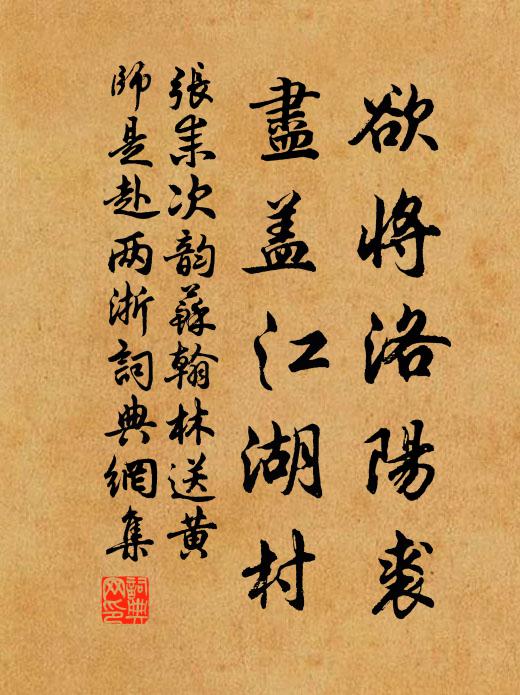 欲将洛陽裘
盡盖江湖村
張耒次韵蘇翰林送黄
師是赴两浙詞典網集
詞典網印